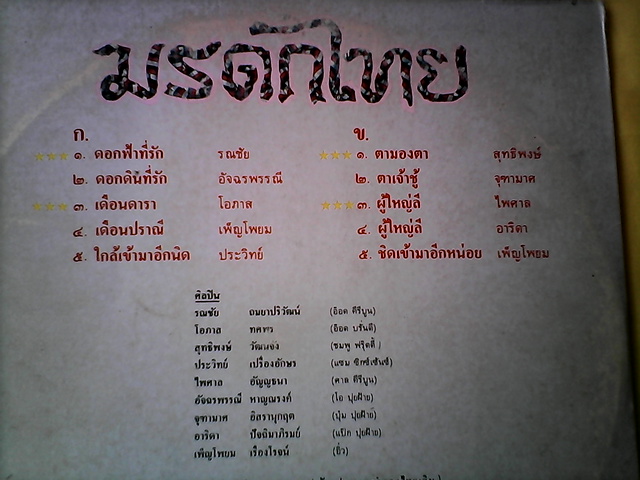 มรดกไทย
ก.
๑. ดอกฟ้าที่รัก รณชัย
๒. ดอกดินที่รัก อัจฉรพรรณี
๓. เดือนดารา โอภาส
๔. เดือนปราณี เพ็ญโพยม
๕. ใกล้เข้ามาอีกนิด ประวิทย์
ข.
๑. ตามองตา สุทธิพงษ์
๒. ตาเจ้าชู้ จุฑามาศ
๓. ผู้ใหญ่ลี ไพศาล
๔. ผู้ใหญ่ลี อาริดา
๕. ชิดเข้ามาอีกหน่อย เพ็ญโพยม
ศิลปิน
รณชัย ถมยาปริวัฒน์ (อ๊อด คีรีบูน)
โอภาส ทศพร (อ๊อด บรั่นดี)
สุทธิพงษ์ วัฒนจัง (ชมพู ฟรุ๊ตตี้)
ประวิทย์ เปรื่องอักษร (แซม ซิกซ์เซ้นซ์)
ไพศาล อัญญธนา (ศาล คีรีบูน)
อัจฉรพรรณี หาญณรงค์ (โอ ปุยฝ้าย)
จุฑามาศ อิสรานุกฤต (ปุ้ม ปุยฝ้าย)
อาริดา ปัจฉิมาภิรมย์ (แป๊ก ปุยฝ้าย)
เพ็ญโพยม เรืองโรจน์ (ยิ๋ว)